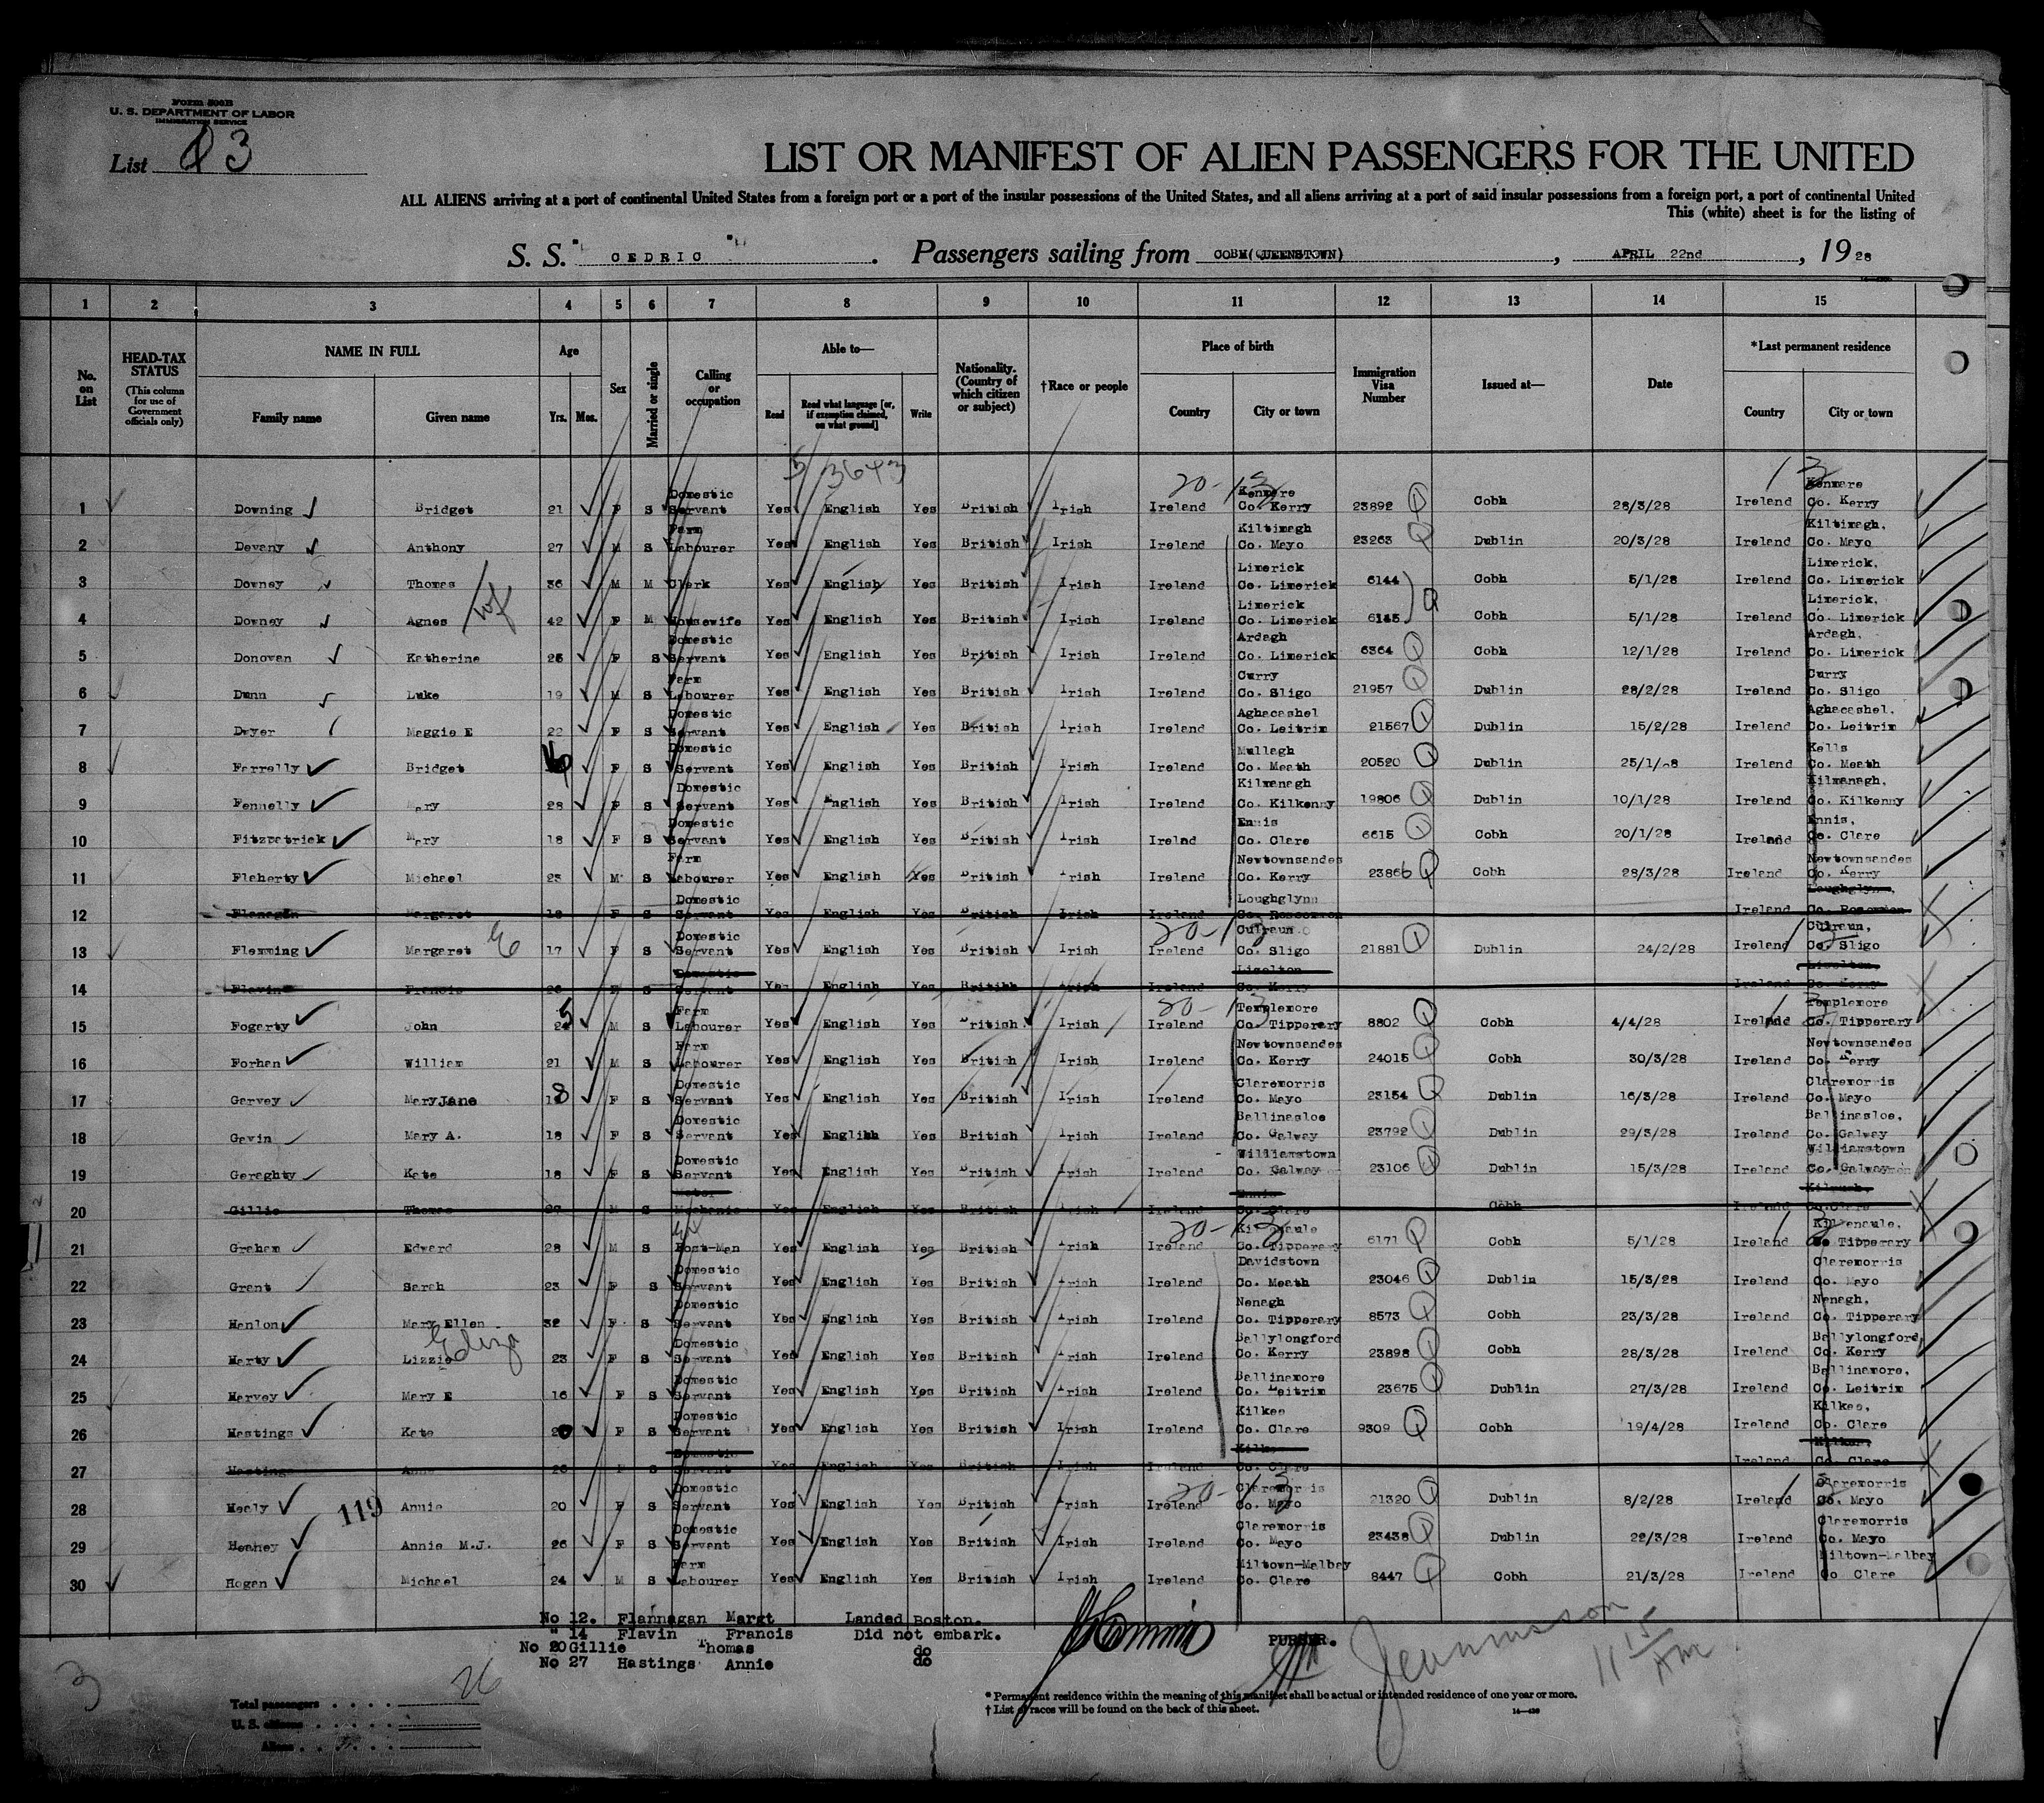 Form 500B
U. S. DEPARTMENT OF LABOR
IMMIGRATION SERVICE
List 3
LIST OR MANIFEST OF ALIEN PASSENGERS FOR THE UNITED
ALL ALIENS arriving at a port of continental United States from a foreign port or a port of the insular possessions of the United States, and all aliens arriving at a port of said insular possessions from a foreign port, a port of continental United
This (white) sheet is for the listing of
S. S. "CEDRIC" . Passengers sailing from COBH(QUEENSTOWN) , APRIL 22nd , 1928
1 2 3 4 5 6 7 8 9 10 11 12 13 14 15
No. on List
HEAD-TAX STATUS (This column for use of Government officials only)
NAME IN FULL
Family name Given name
Age
Yrs. Mos.
Sex
Married or single
Calling or occupation
Able to—
Read Read what language [or, if exemption claimed, on what ground] Write
Nationality. (Country of which citizen or subject)
†Race or people
Place of birth
Country City or town
Immigration Visa Number
Issued at—
Date
*Last permanent residence
Country City or town
3/3643
20-13
13
1 Downing Bridget 21 F S Domestic Servant Yes English Yes British Irish Ireland Kenmare Co. Kerry 23892 Cobh 28/3/28 Ireland Kenmare Co. Kerry
2 Devany Anthony 27 M S Farm Labourer Yes English Yes British Irish Ireland Kiltimagh Co. Mayo 23263 Dublin 20/3/28 Ireland Kiltimagh, Co. Mayo
3 Downey Thomas 36 M M Clerk Yes English Yes British Irish Ireland Limerick Co. Limerick 6144 Cobh 5/1/28 Ireland Limerick, Co. Limerick
4 Downey Agnes wf 42 F M Housewife Yes English Yes British Irish Ireland Limerick Co. Limerick 6145 Cobh 5/1/28 Ireland Limerick, Co. Limerick
5 Donovan Katherine 25 F S Domestic Servant Yes English Yes British Irish Ireland Ardagh Co. Limerick 6364 Cobh 12/1/28 Ireland Ardagh, Co. Limerick
6 Dunn Luke 19 M S Farm Labourer Yes English Yes British Irish Ireland Curry Co. Sligo 21957 Dublin 28/2/28 Ireland Curry Co. Sligo
7 Dwyer Maggie E 22 F S Domestic Servant Yes English Yes British Irish Ireland Aghacashel Co. Leitrim 21567 Dublin 15/2/28 Ireland Aghacashel. Co. Leitrim
8 Farrelly Bridget F S Domestic Servant Yes English Yes British Irish Ireland Mullagh Co. Meath 20520 Dublin 25/1/28 Ireland Kells Co. Meath
9 Fennelly Mary 28 F S Domestic Servant Yes English Yes British Irish Ireland Kilmanagh Co. Kilkenny 19806 Dublin 10/1/28 Ireland Kilmanagh, Co. Kilkenny
10 Fitzpatrick Mary 18 F S Domestic Servant Yes English Yes British Irish Irelnd Ennis Co. Clare 6615 Cobh 20/1/28 Ireland Ennis, Co. Clare
11 Flaherty Michael 23 M S Farm Labourer Yes English Yes British Irish Ireland Newtownsandes Co. Kerry 23866 Cobh 28/3/28 Ireland Newtownsandes Co. Kerry
12 Flanagan Margaret 18 F S Domestic Servant Yes English Yes British Irish Ireland Loughglynn Co. Roscommon Ireland Loughglynn, Co. Roscommon
13 Flemming Margaret 17 F S Domestic Servant Yes English Yes British Irish Ireland Culraun Co. Sligo 21881 Dublin 24/2/28 Ireland Culraun, Co. Sligo
14 Flavin Francis 26 S Domestic Servant Yes English Yes British Irish Ireland Liselton Co. Kerry Ireland Liselton, Co. Kerry
15 Fogarty John 25 M S Farm Labourer Yes English Yes British Irish Ireland Templemore Co. Tipperary 8802 Cobh 4/4/28 Ireland Templemore Co. Tipperary
16 Forhan William 21 M S Farm Labourer Yes English Yes British Irish Ireland Newtownsandes Co. Kerry 24015 Cobh 30/3/28 Ireland Newtownsandes Co. Kerry
17 Garvey Mary Jane 18 F S Domestic Servant Yes English Yes British Irish Ireland Claremorris Co. Mayo 23154 Dublin 16/3/28 Ireland Claremorris Co. Mayo
18 Gavin Mary A. 18 F S Domestic Servant Yes English Yes British Irish Ireland Ballinasloe Co. Galway 23792 Dublin 29/3/28 Ireland Ballinasloe, Co. Galway
19 Geraghty Kate 18 F S Domestic Servant Yes English Yes British Irish Ireland Williamstown Co. Galway 23106 Dublin 15/3/28 Ireland Williamstown Co. Galway
20 Gillie Thomas 27 M S Motor Mechanic Yes English Yes British Irish Ireland Ennis Co. Clare Cobh Ireland Kilrush, Co. Clare
21 Graham Edward 28 M S Post-Man Yes English Yes British Irish Ireland Killenaule Co. Tipperary 6171 Cobh 5/1/28 Ireland Killenaule, Co Tipperary
22 Grant Sarah 23 F S Domestic Servant Yes English Yes British Irish Ireland Davidstown Co. Meath 23046 Dublin 15/3/28 Ireland Claremorris Co. Mayo
23 Hanlon Mary Ellen 32 F S Domestic Servant Yes English Yes British Irish Ireland Nenagh Co. Tipperary 8573 Cobh 23/3/28 Ireland Nenagh, Co. Tipperary
24 Harty Lizzie Eliza 23 F S Domestic Servant Yes English Yes British Irish Ireland Ballylongford Co. Kerry 23898 Cobh 28/3/28 Ireland Ballylongford, Co. Kerry
25 Harvey Mary E 16 F S Domestic Servant Yes English Yes British Irish Ireland Ballinamore Co. Leitrim 23675 Dublin 27/3/28 Ireland Ballinamore, Co. Leitrim
26 Hastings Kate 20 F S Domestic Servant Yes English Yes British Irish Ireland Kilkee Co. Clare 9309 Cobh 19/4/28 Ireland Kilkee, Co. Clare
27 Hastings Anne 26 F S Domestic Servant Yes English Yes British Irish Ireland Kilkee Co. Clare Ireland Kilkee, Co. Clare
28 Healy 119 Annie 20 F S Domestic Servant Yes English Yes British Irish Ireland Claremorris Co. Mayo 21320 Dublin 8/2/28 Ireland Claremorris Co. Mayo
29 Heaney Annie M.J. 26 F S Domestic Servant Yes English Yes British Irish Ireland Claremorris Co. Mayo 23438 Dublin 22/3/28 Ireland Claremorris Co. Mayo
30 Hogan Michael 24 M S Farm Labourer Yes English Yes British Irish Ireland Miltown-Malbay Co. Clare 8447 Cobh 21/3/28 Ireland Miltown-Malbay Co Clare
No 12. Flannagan Margt Landed Boston.
" 14 Flavin Francis Did not embark.
No 20 Gillie Thomas do
No 27 Hastings Annie do
PURSER.
Jeannisson 11 15 AM
3
Total passengers . . . . 26
U. S. citizens . . . . .
Aliens . . . .
* Permanent residence within the meaning of this manifest shall be actual or intended residence of one year or more.
† List of races will be found on the back of this sheet.
14—430